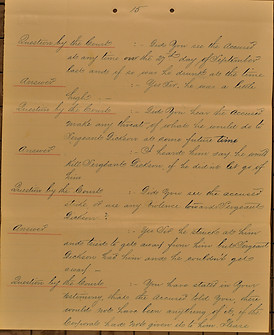 15
Question by the Court :- Did You see the accused
at any time on the 29th day of September
last and if so was he drunk at the time
Answer :- Yes Sir, he was a little
tight. —
Question by the Court :- Did You hear the accused
make any threat of what he would do to
Sergeant Dickson at some future time
Answer :- I heard him say he would
kill Sergeant Dickson if he did not let go of
him
Question by the Court :- Did You see the accused
make use of any violence toward Sergeant
Dickson?
Answer :- Yes Sir he struck at him
and tried to get away from him but Sergeant
Dickson had him and he couldn't get
away. —
Question by the Court :- You have stated in Your
testimony that the accused told You, there
would not have been anything of it, if the
Corporal had not given it to him. Please